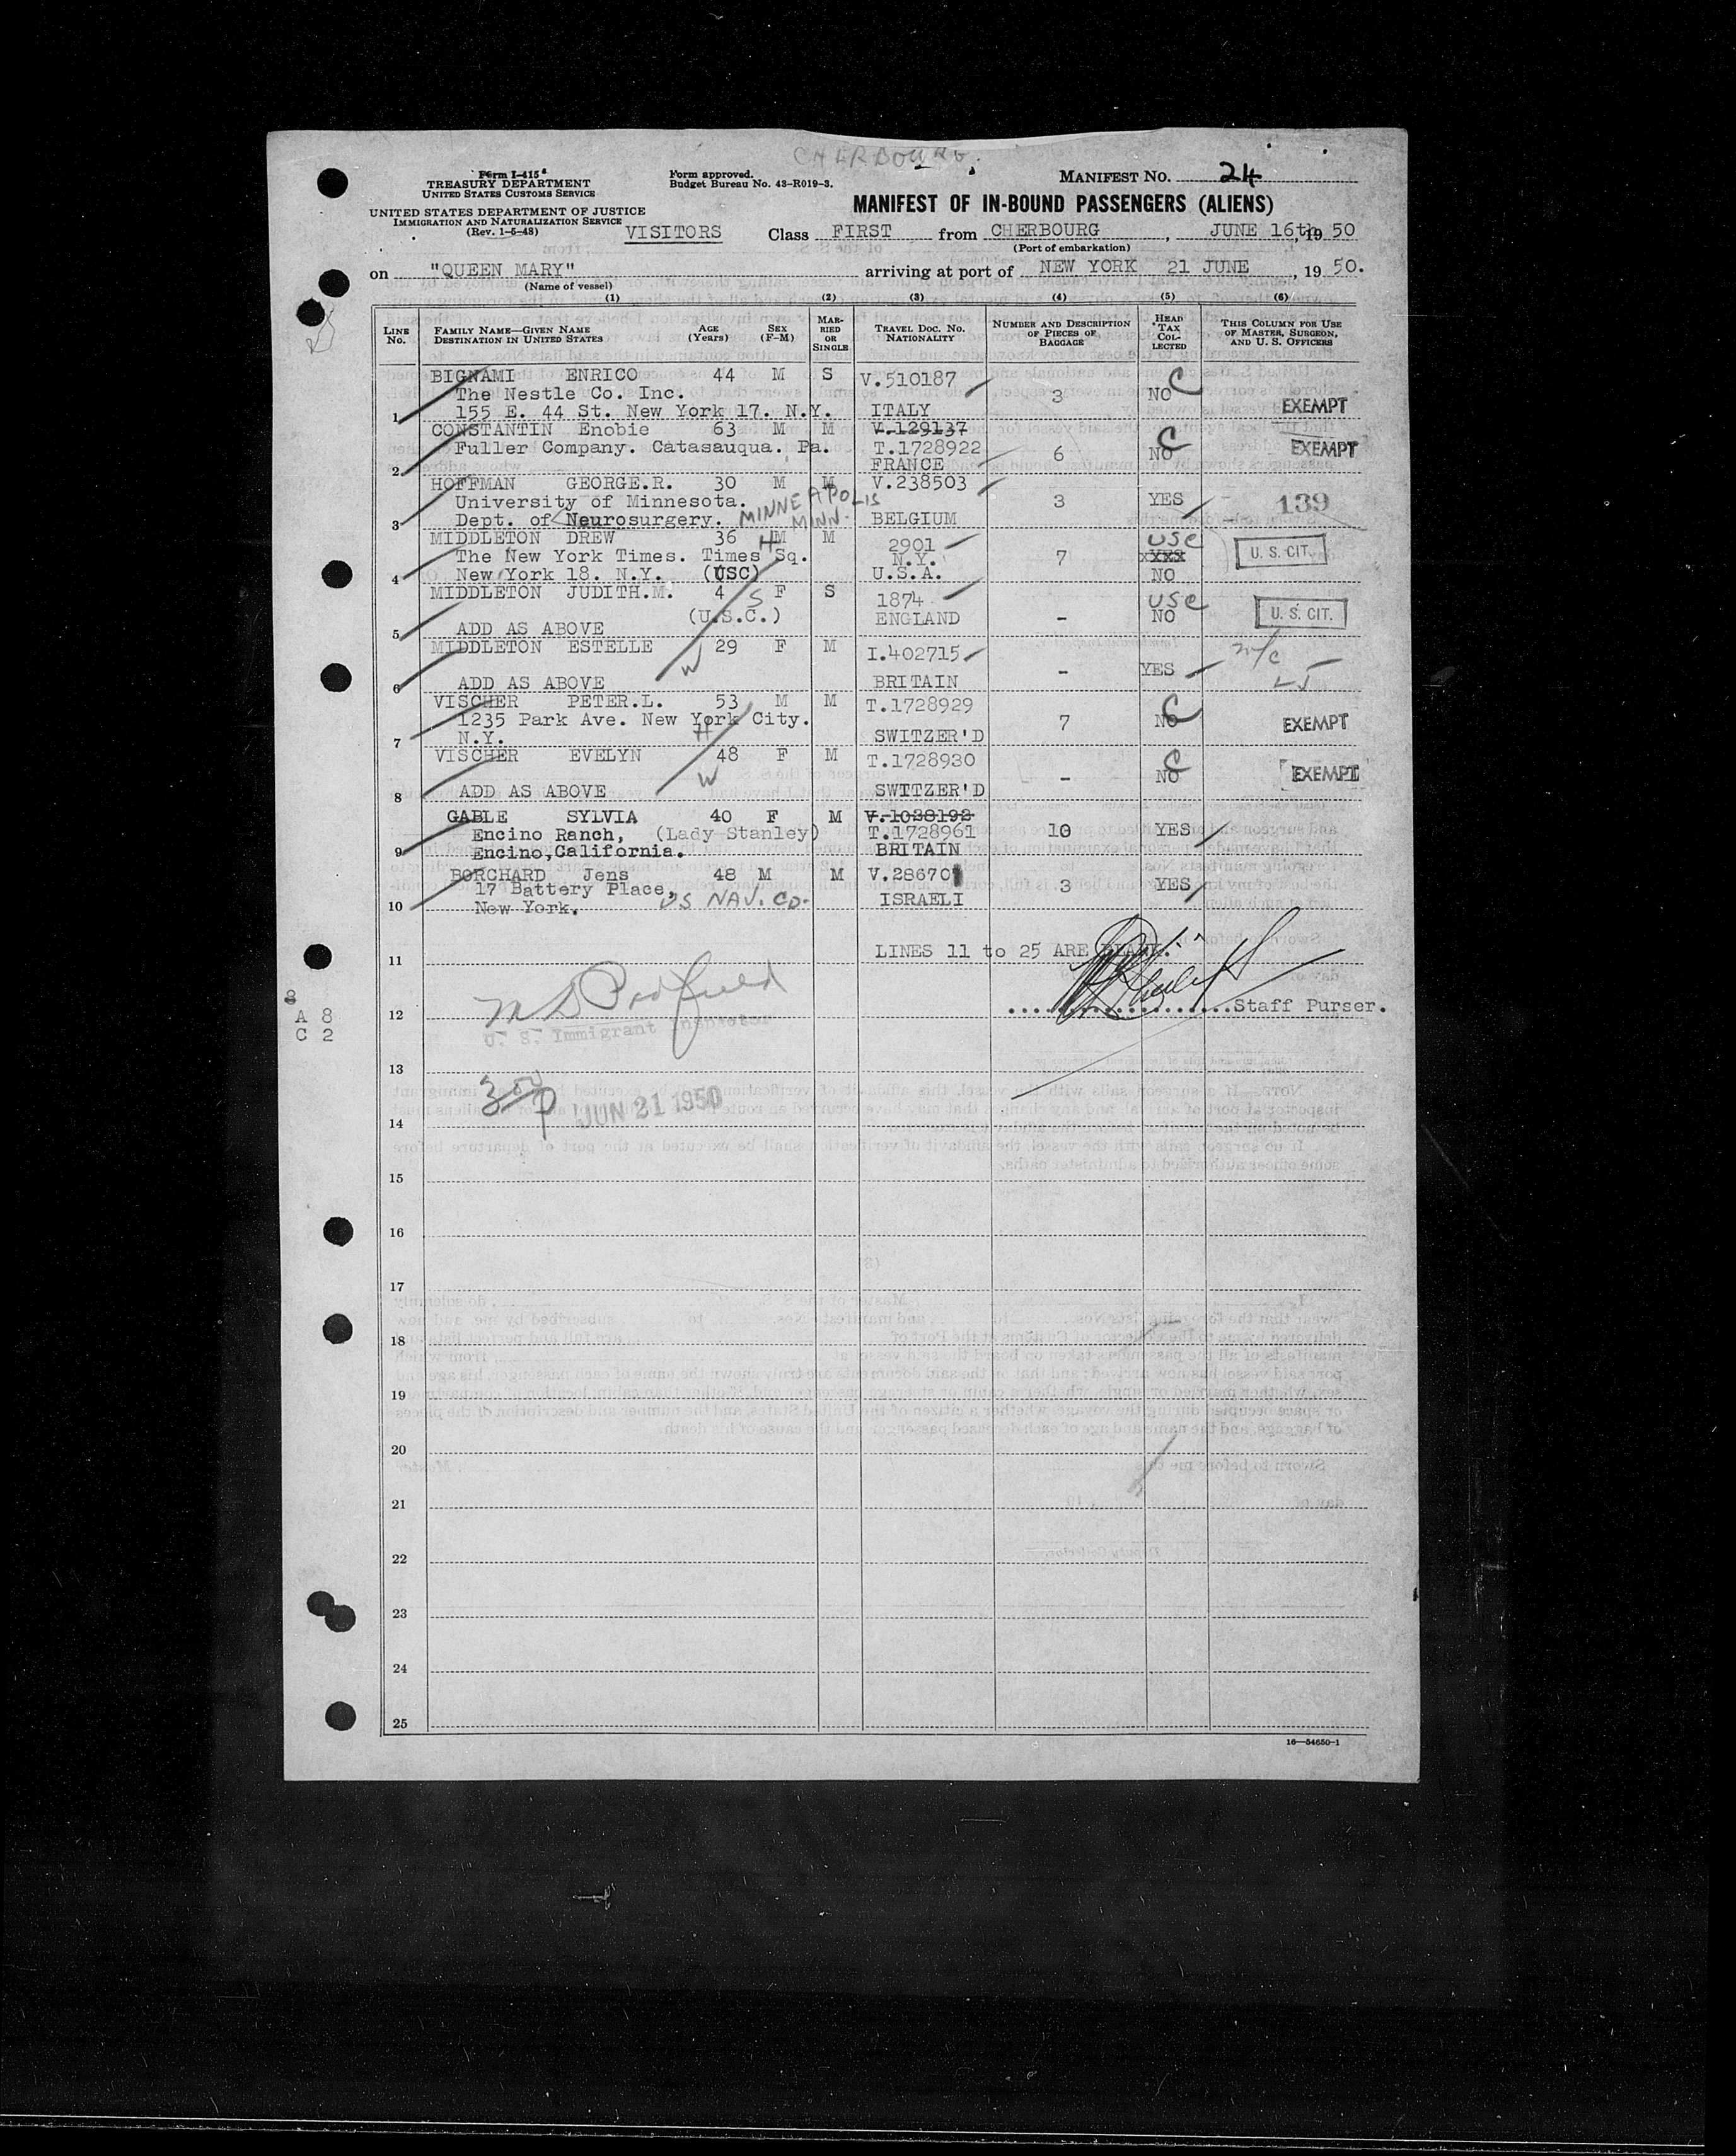 CHERBOURG.
Form I-415
TREASURY DEPARTMENT
UNITED STATES CUSTOMS SERVICE
Form approved.
Budget Bureau No. 43-R019-3.
MANIFEST NO. 24
UNITED STATES DEPARTMENT OF JUSTICE
IMMIGRATION AND NATURALIZATION SERVICE
(Rev. 1-5-48)
MANIFEST OF IN-BOUND PASSENGERS (ALIENS)
VISITORS Class FIRST from CHERBOURG, JUNE 16th, 19 50
(Port of embarkation)
on "QUEEN MARY" arriving at port of NEW YORK 21 JUNE, 19 50.
(Name of vessel)
(1) (2) (3) (4) (5) (6)
LINE No. FAMILY NAME—GIVEN NAME DESTINATION IN UNITED STATES AGE (Years) SEX (F-M) MARRIED OR SINGLE TRAVEL DOC. NO. NATIONALITY NUMBER AND DESCRIPTION OF PIECES OF BAGGAGE HEAD TAX COLLECTED THIS COLUMN FOR USE OF MASTER, SURGEON, AND U. S. OFFICERS
BIGNAMI ENRICO 44 M S V.510187
The Nestle Co. Inc. 3 NO C
1 155 E. 44 St. New York 17. N.Y. ITALY EXEMPT
CONSTANTIN Enobie 63 M M V.129137
Fuller Company. Catasauqua. Pa. T.1728922 6 NO C EXEMPT
2 FRANCE
HOFFMAN GEORGE.R. 30 M M V.238503
University of Minnesota. MINNEAPOLIS 3 YES 139
3 Dept. of Neurosurgery. MINN. BELGIUM
MIDDLETON DREW 36 H M M 2901 USC
The New York Times. Times Sq. N.Y. 7 xXXX U. S. CIT.
4 New York 18. N.Y. (USC) U.S.A. NO
MIDDLETON JUDITH.M. 4 S F S 1874 USC
(U.S.C.) ENGLAND - NO U. S. CIT.
5 ADD AS ABOVE
MIDDLETON ESTELLE 29 F M I.402715
W - YES
6 ADD AS ABOVE BRITAIN
VISCHER PETER.L. 53 M M T.1728929
1235 Park Ave. New York City. 7 NO C EXEMPT
7 N.Y. H SWITZER'D
VISCHER EVELYN 48 F M T.1728930
W - NO C EXEMPT
8 ADD AS ABOVE SWITZER'D
GABLE SYLVIA 40 F M V.1038192
Encino Ranch, (Lady Stanley) T.1728961 10 YES
9 Encino,California. BRITAIN
BORCHARD Jens 48 M M V.28670
17 Battery Place, US NAV. CO. 3 YES
10 New York. ISRAELI
11 LINES 11 to 25 ARE BLANK.
A 8
12 Staff Purser.
C 2
U. S. Immigrant Inspector
13
JUN 21 1950
14
15
16
17
18
19
20
21
22
23
24
25
16—54650-1